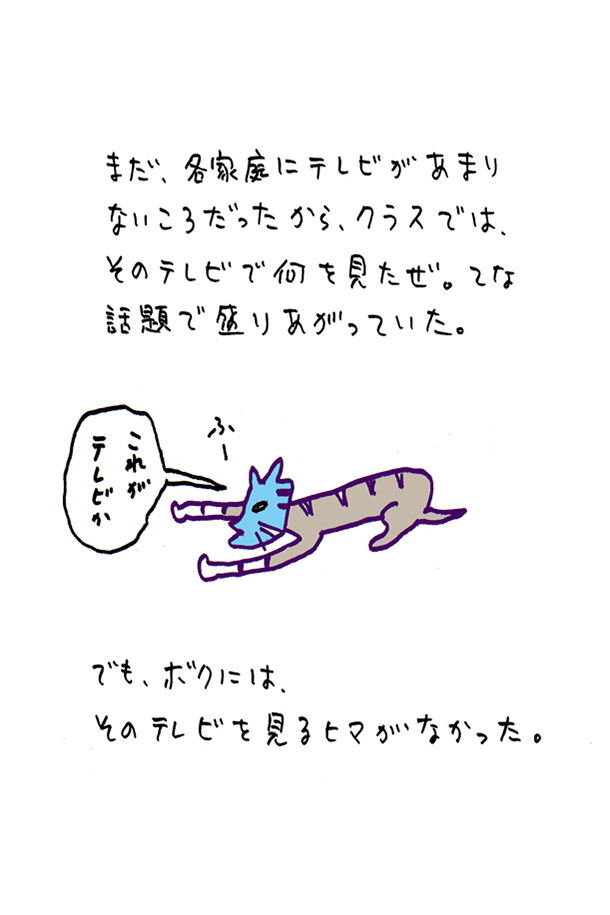 まだ、各家庭にテレビがあまり
ないころだったから、クラスでは、
そのテレビで何を見たぜ。てな
話題で盛りあがっていた。
ふー
これが
テレビか
でも、ボクには、
そのテレビを見るヒマがなかった。